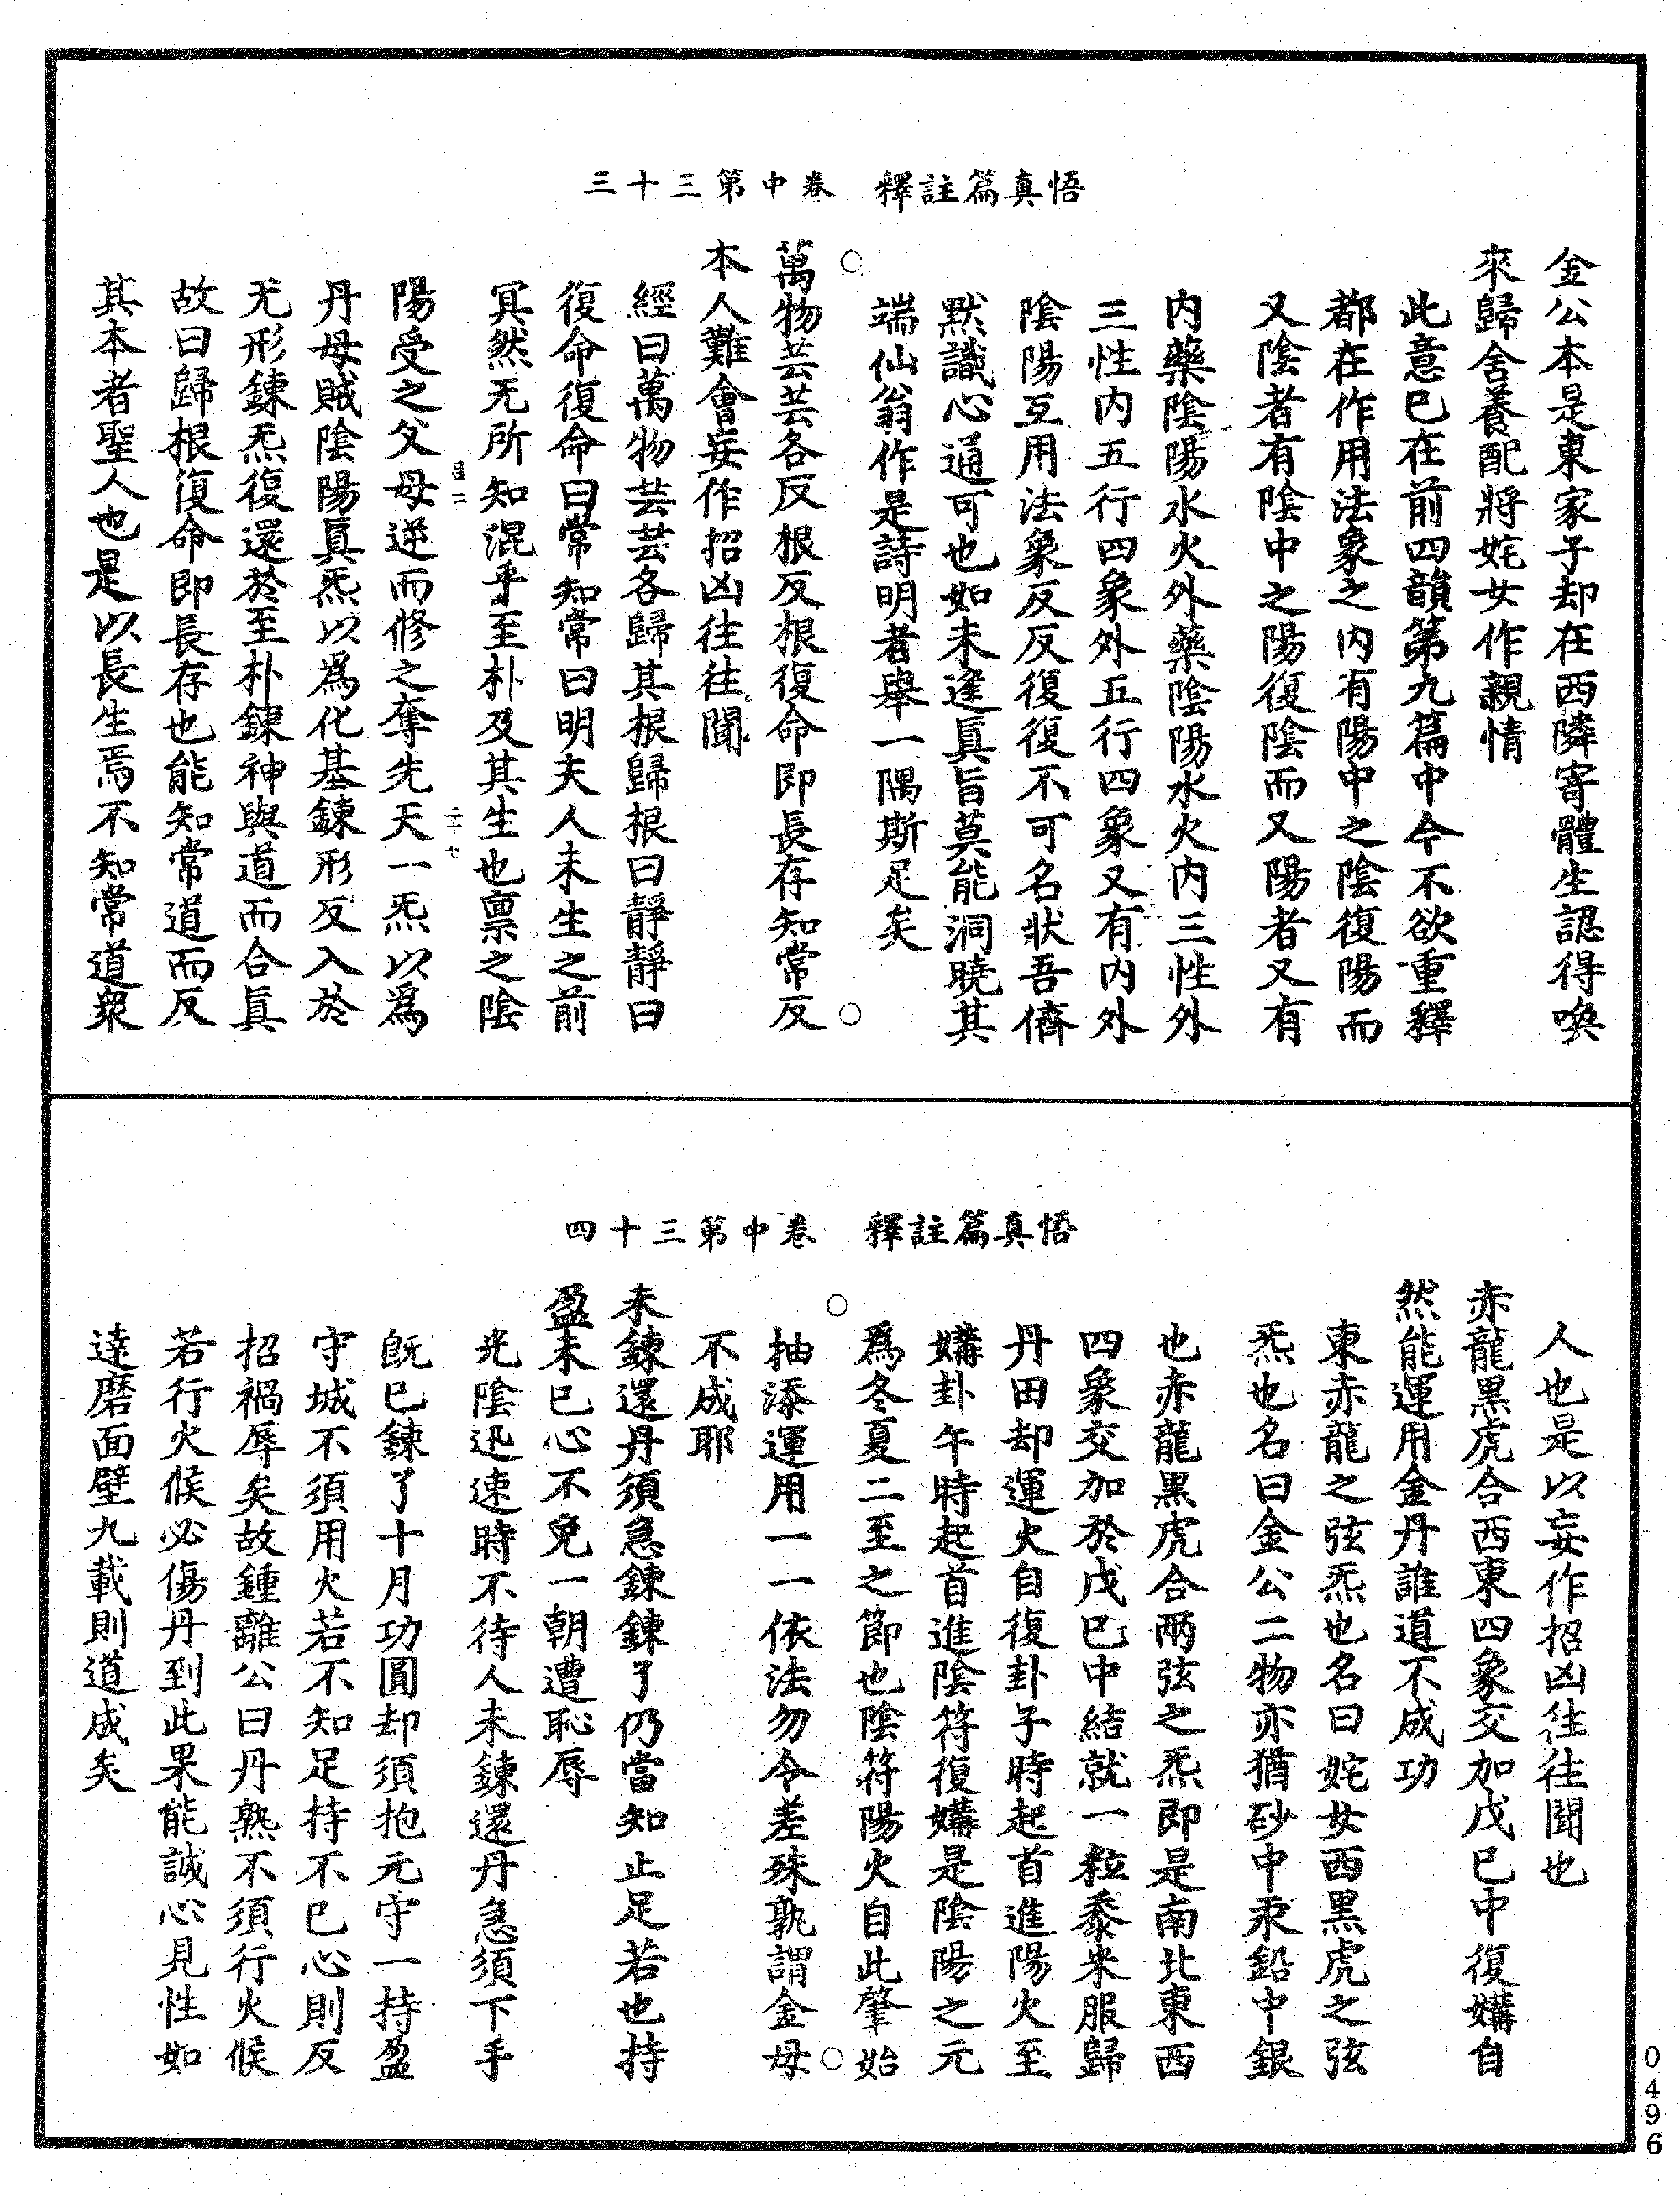 悟真篇註釋　卷中第三十三
金公本是東家子却在西隣寄體生認得喚
來歸舍養配將姹女作親情
此意巳在前四韻第九篇中今不欲重釋
都在作用法象之内有陽中之陰復陽而
又陰者有陰中之陽復陰而又陽者又有
内藥陰陽水火外藥陰陽水火内三性外
三性内五行四象外五行四象又有内外
陰陽互用法象反反復復不可名狀吾儕
默識心通可也如未逢眞旨莫能洞曉其
端仙翁作是詩明者舉一隅斯足矣
○　○
萬物芸芸各反根反根復命即長存知常反
本人難會妄作招凶往往聞
經曰萬物芸芸各歸其根歸根曰靜靜曰
復命復命曰常知常曰明夫人未生之前
冥然无所知混乎至朴及其生也禀之陰
陽受之父母逆而修之奪先天一炁以爲
丹母賊陰陽眞炁以爲化基鍊形反入於
无形鍊炁復還於至朴鍊神與道而合眞
故曰歸根復命即長存也能知常道而反
其本者聖人也是以長生焉不知常道衆
悟真篇註釋　卷中第三十四
人也是以妄作招凶往往聞也
赤龍黑虎合西東四象交加戊巳中復媾自
然能運用金丹誰道不成功
東赤龍之弦炁也名曰姹女西黑虎之弦
炁也名曰金公二物亦猶砂中汞鉛中銀
也赤龍黑虎合兩弦之炁即是南北東西
四象交加於戊巳中結就一粒黍米服歸
丹田却運火自復卦子時起首進陽火至
媾卦午時起首進陰符復媾是陰陽之元
爲冬夏二至之節也陰符陽火自此肇始
抽添運用一一依法勿令差殊孰謂金母
不成耶
○　○
未鍊還丹須急鍊鍊了仍當知止足若也持
盈未巳心不免一朝遭恥辱
光陰迅速時不待人未鍊還丹急須下手
旣巳鍊了十月功圓却須抱元守一持盈
守城不須用火若不知足持不巳心則反
招禍辱矣故鍾離公曰丹熟不須行火候
若行火候必傷丹到此果能誠心見性如
達磨面壁九載則道成矣
0496